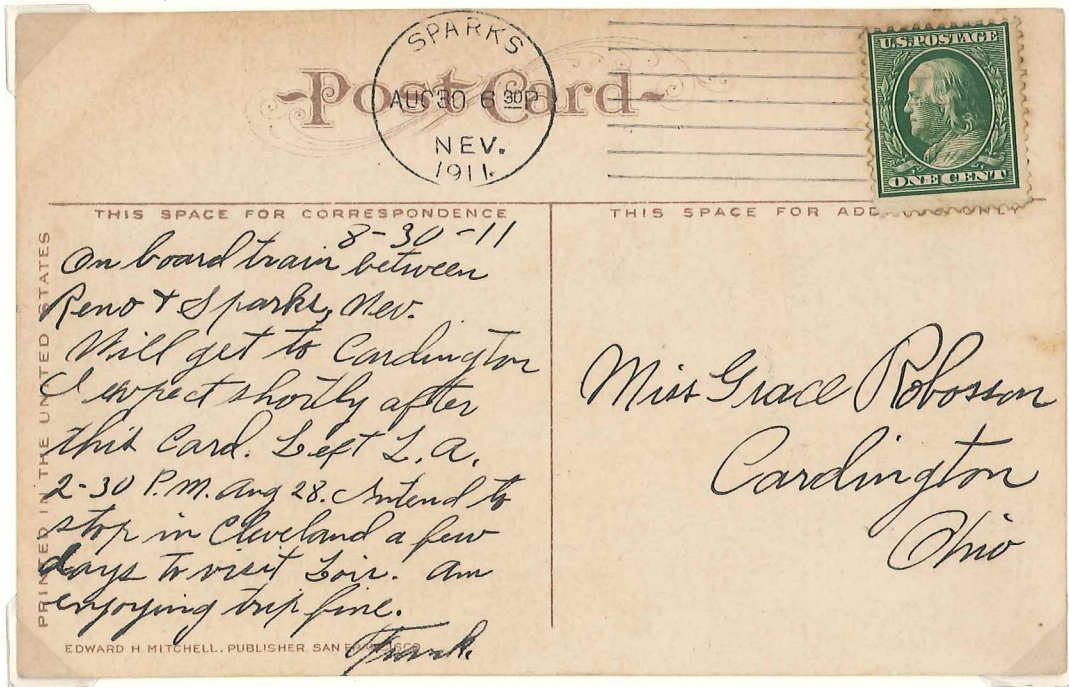 SPARKS
AUG 30 6 30P
NEV.
1911.
Post Card
U.S. POSTAGE
ONE CENT
THIS SPACE FOR CORRESPONDENCE
THIS SPACE FOR ADD ONLY
PRINTED IN THE UNITED STATES
8-30-11
On board train between
Reno & Sparks, Nev.
Will get to Cardington
I expect shortly after
this card. Left L.A.
2-30 P.M. Aug 28. Intend to
stop in Cleveland a few
days to visit Lois. Am
enjoying trip fine.
Frank.
EDWARD H. MITCHELL, PUBLISHER. SAN FRANCISCO
Miss Grace Robosson
Cardington
Ohio